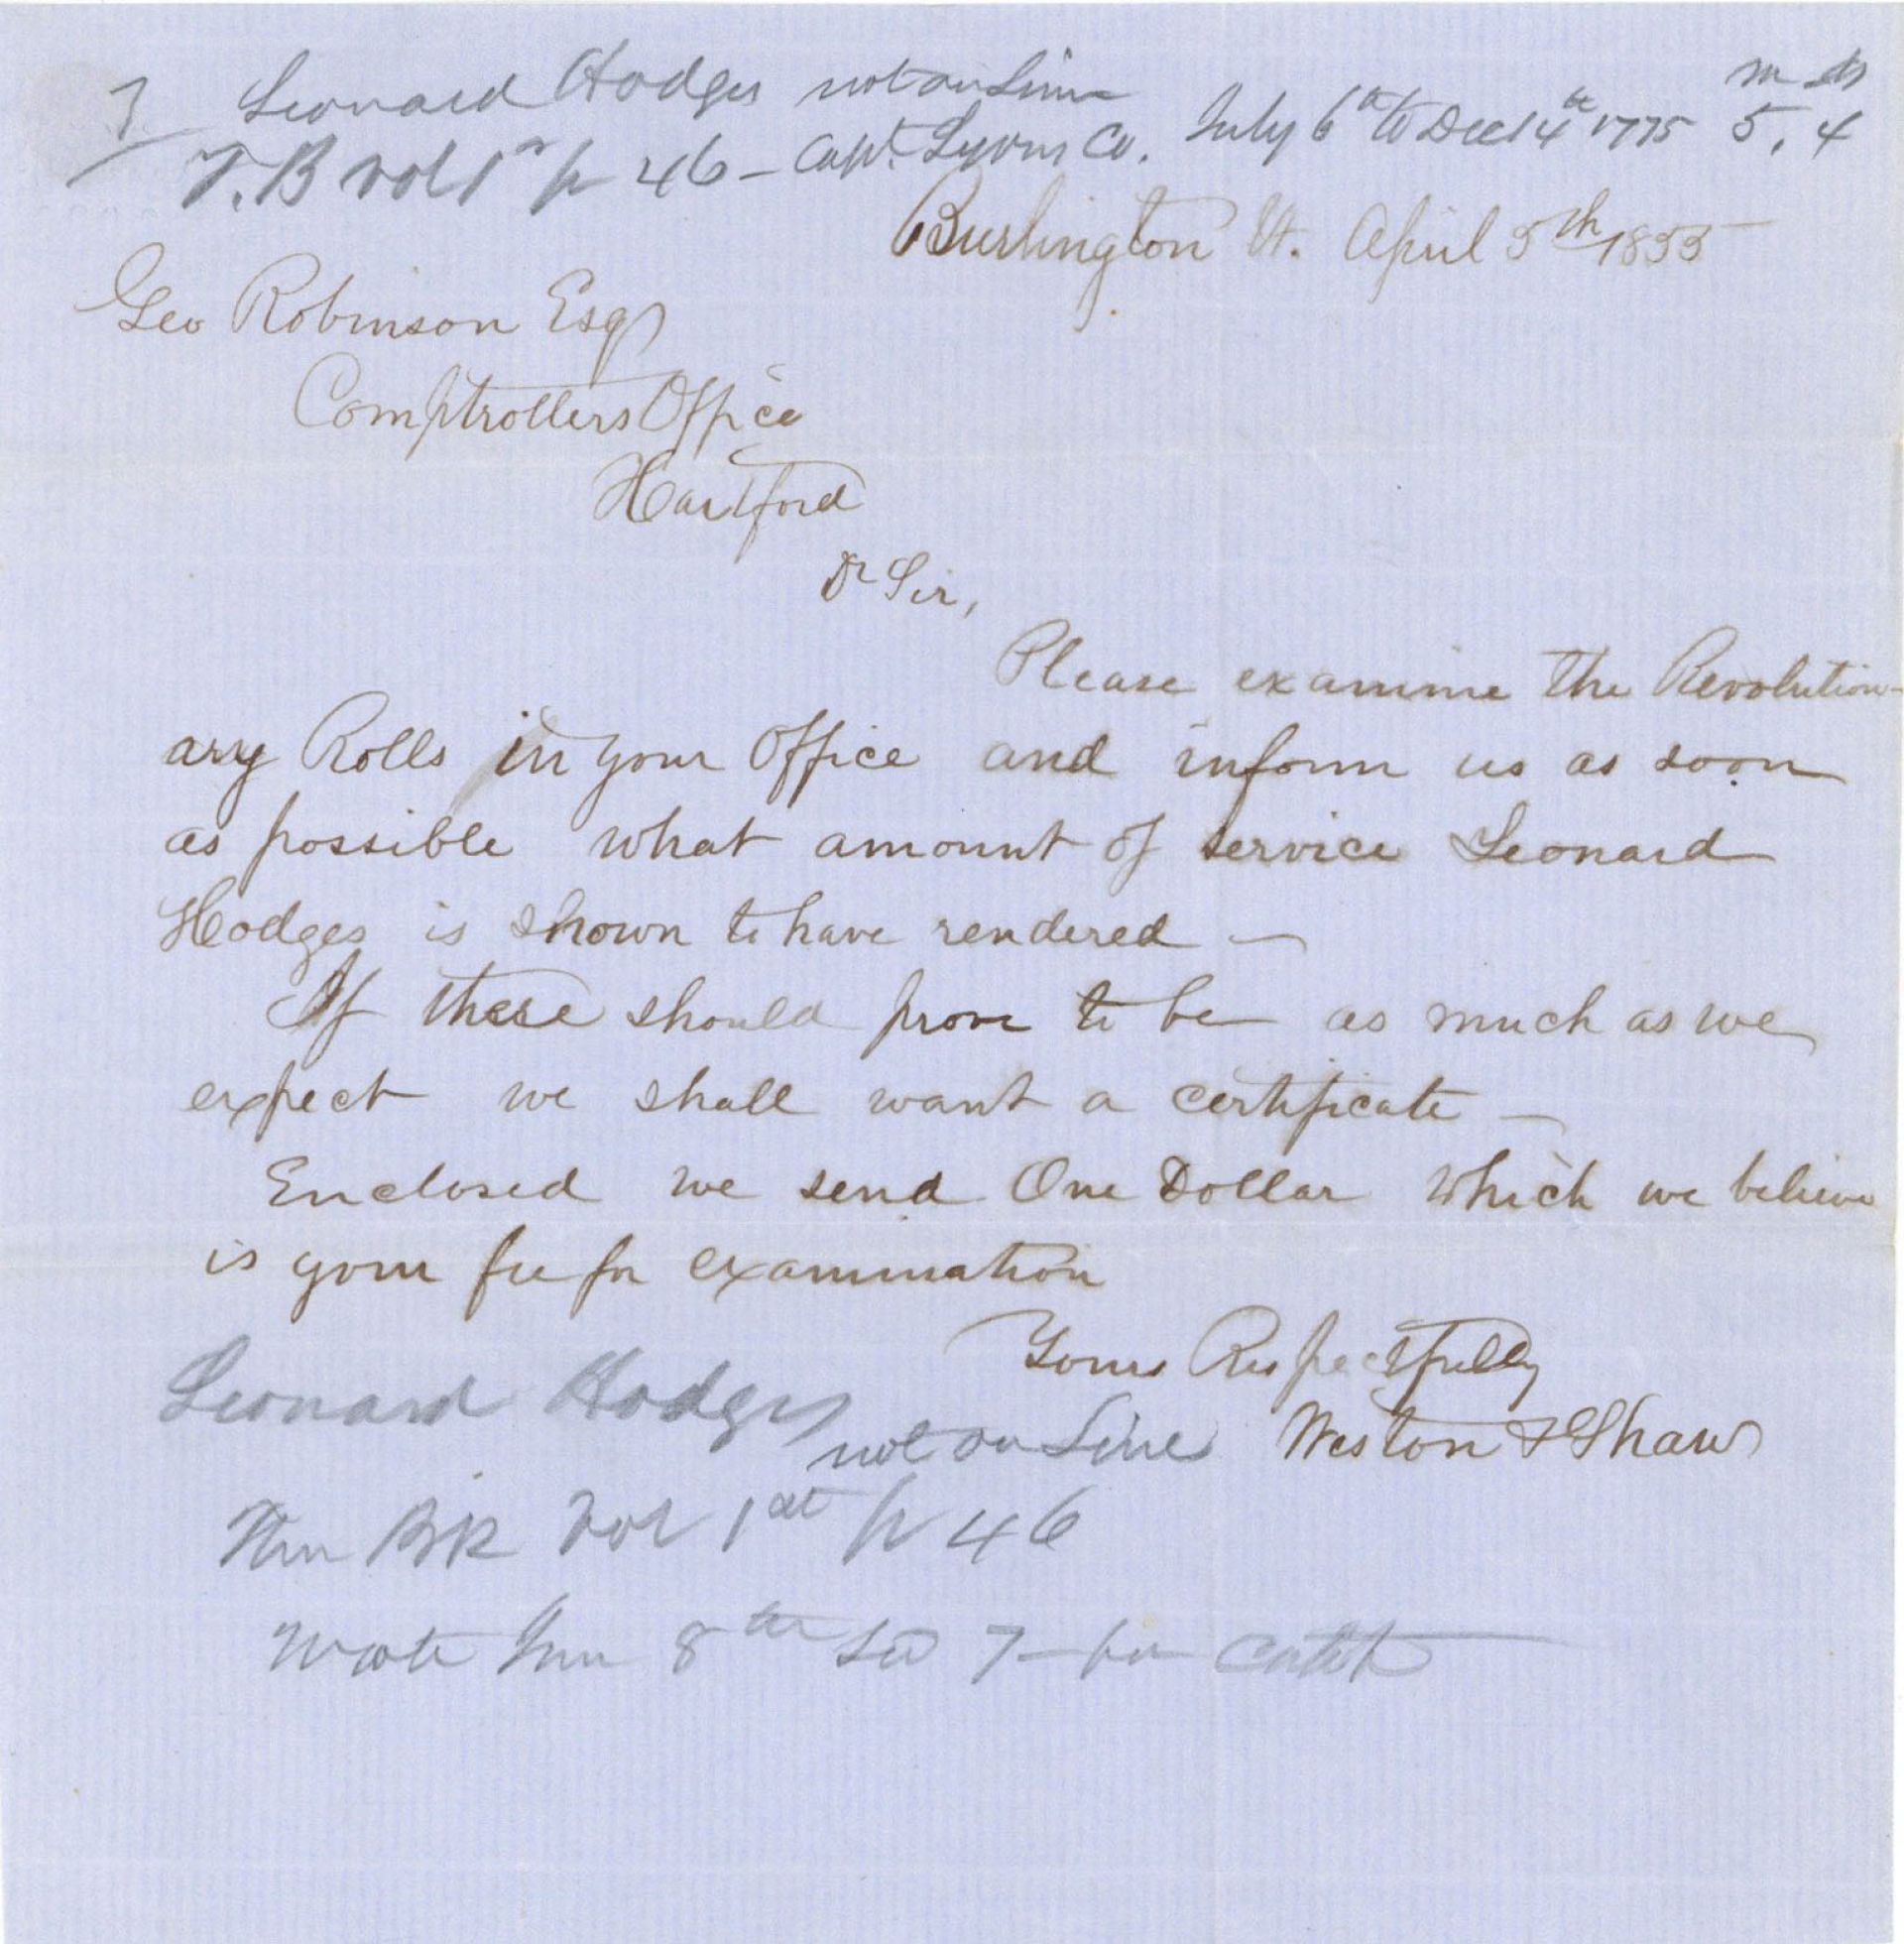 Leonard Hodges not on Line
m ds
T. B vol 1st p 46 - Capt. Lyons Co. July 6th to Dec 14th 1775 5, 4
Burlington Vt. April 5th 1855
Geo Robinson Esq
Comptrollers Office
Hartford
Dr Sir,
Please examine the Revolution-
ary Rolls in your Office and inform us as soon
as possible what amount of service Leonard
Hodges is shown to have rendered —
If there should prove to be as much as we
expect we shall want a certificate —
Enclosed we send One Dollar which we believe
is your fee for examination
Yours Respectfully
Weston & Shaw
Leonard Hodges
not on Line
Bk Vol 1st p 46
Wrote 8th 7 for